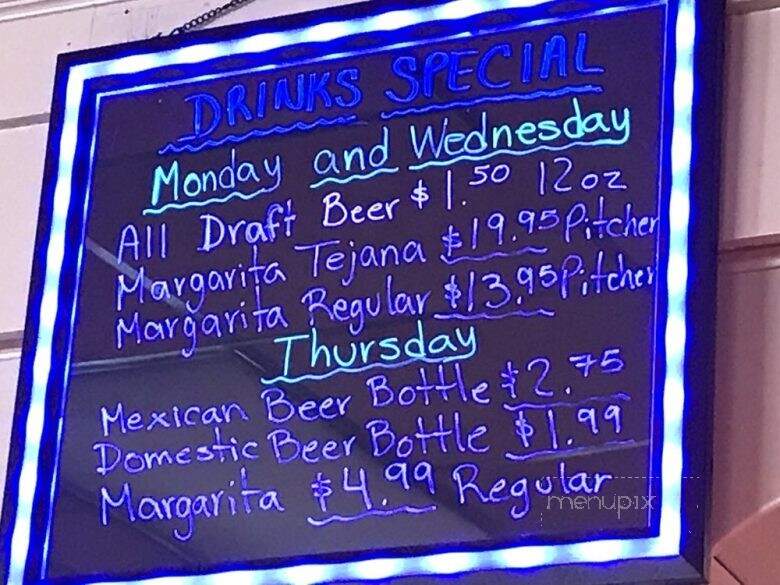 DRINKS SPECIAL
Monday and Wednesday
All Draft Beer $1.50 12oz
Margarita Tejana $19.95 Pitcher
Margarita Regular $13.95 Pitcher
Thursday
Mexican Beer Bottle $2.75
Domestic Beer Bottle $1.99
Margarita $4.99 Regular
menupix